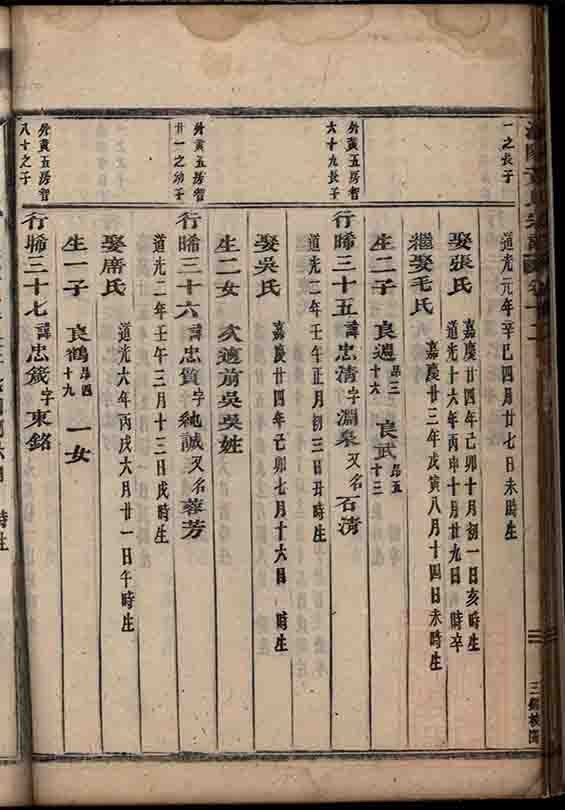 一之長子
道光元年辛巳四月廿七日未時生
娶張氏
嘉慶廿四年己卯十月初一日亥時生
道光十六年丙申十月廿九日 時卒
繼娶毛氏
嘉慶廿三年戊寅八月十四日未時生
生二子 良週 昂三十六 良武 昂五十三
外黃五房智
六十九長子
行晞三十五 諱忠清 字淵泉 又名石清
道光二年壬午正月初三日丑時生
娶吳氏
嘉慶廿四年己卯七月十六日 時生
生二女 次適前吳吳姓
外黃五房智
廿一之幼子
行晞三十六 諱忠質 字純誠 又名蓉芳
道光二年壬午三月十三日戌時生
娶席氏
道光六年丙戌六月廿一日午時生
生一子 良鶴 昂四十九 一女
外黃五房智
八十之子
行晞三十七 諱忠箴 字東銘